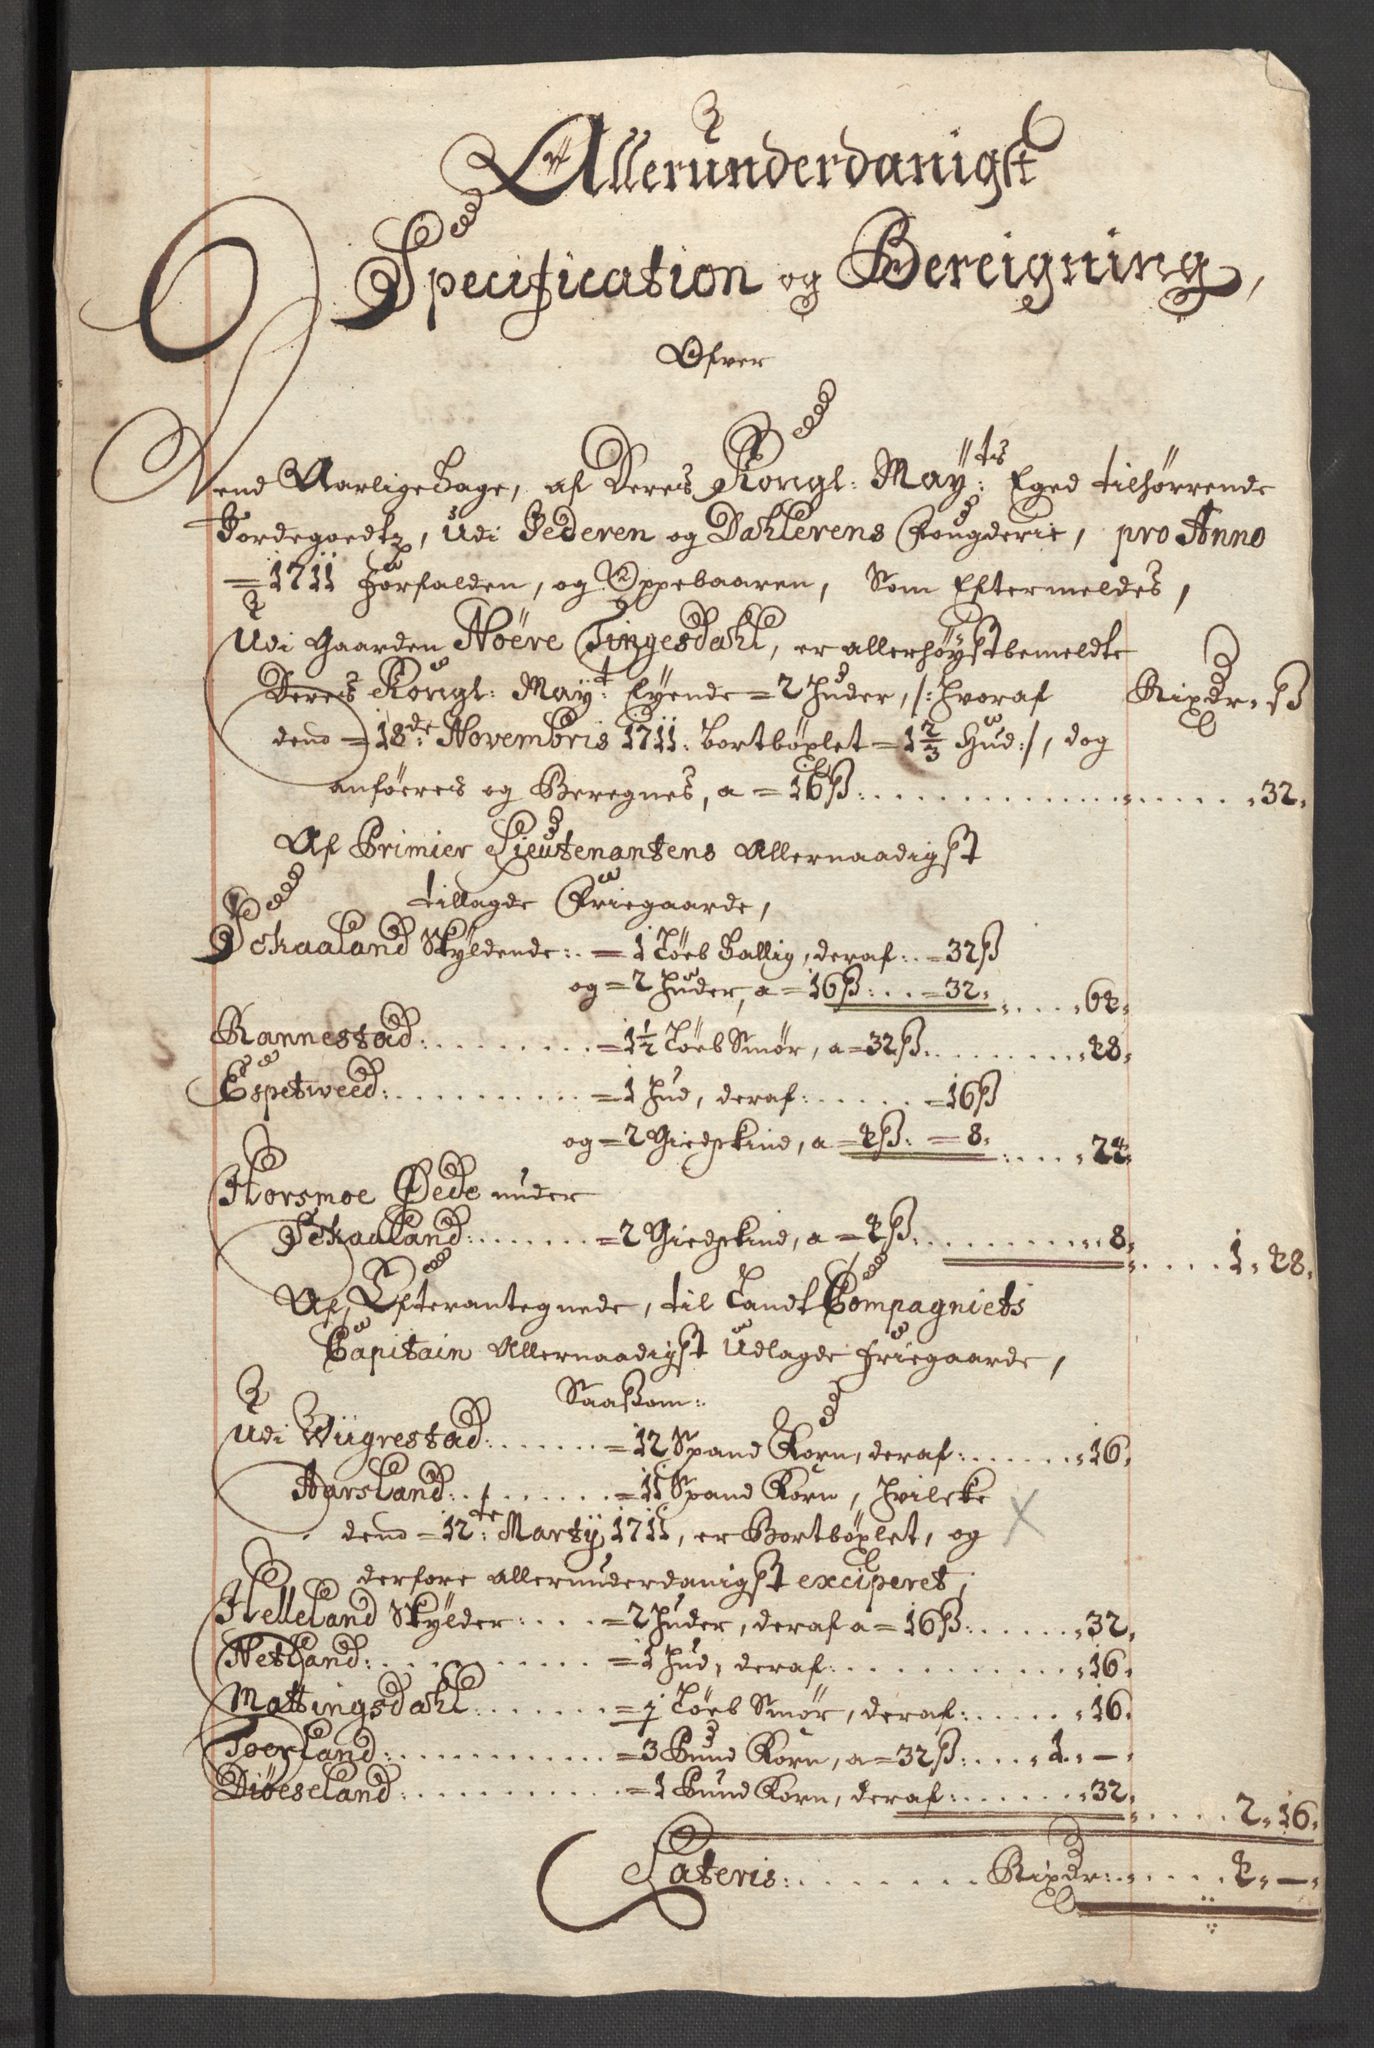 Allerunderdanigst
Specification og Bereigning,
Ofver
end Aarlige Tage, af Deres Kongl: May:ts Eged tilhørrende
Jordegoedtz, Udi Jederen og Dahlerens Fougderie, pro Anno
=1711 Forfalden, og Oppebaaren, Som Eftermeldes,
Udi Gaarden Noëre Tingesdahl, er allerhøÿstbemeldte
Deres Kongl: Maÿ:t Eÿende =2 Huder, /: Hvoraf Rixdr. ß
dend =18de: Novembris 1711: bortbøxlet =1 2/3 Hud :/, dog
anføeres og Beregnes, a =16 ß: . . . . 32.
Af Primier Lieutenantens Allernaadigst
tillagde Friegaarde,
Schaaland Skÿldende: . =1 Løeb Tallig, deraf: . =32 ß
og =2 Huder, a =16 ß: . . =32. . . . . 64.
Rannestad: . . . . =1 1/2 Løeb Smør, a =32 ß. . . . . 48.
Espetweed: . . . . =1 Hud, deraf: . . . . =16 ß
og =2 Giedskind, a =4 ß: =8. . . . . 24.
Horsmoe Øede under
Schaaland: . . . . =2 Giedskind, a =4 ß. . . . . 8. . . . . 1. 48.
Af Efterantegnede, til Landt Compagniets
Capitain Allernaadigst Udlagde Friegaarde,
Saasom:
Udi Wiigrestad: . . . . =12 Spand Korn, deraf: . . . . 16.
Aarsland: . . . . =11 Spand Korn, Hvilcke
dend =12te: Martÿ 1711, er Bortbøxlet, og
derfore allerunderdanigst exciperet,
Helleland Skÿlder: . . . =2 Huder, deraf a =16 ß: . . . . 32.
Netland: . . . . =1 Hud, deraf: . . . . 16.
Mattingsdahl: . . . . =1/2 Løeb Smør, deraf: . . . . 16.
Toerland: . . . . =3 Pund Korn, a =32 ß: . . . 1. —.
Diøeseland: . . . . =1 Pund Korn, deraf: . . . . 32. . . . . 2. 16.
Lateris: . . . . Rixdr: . . . . 4. —.